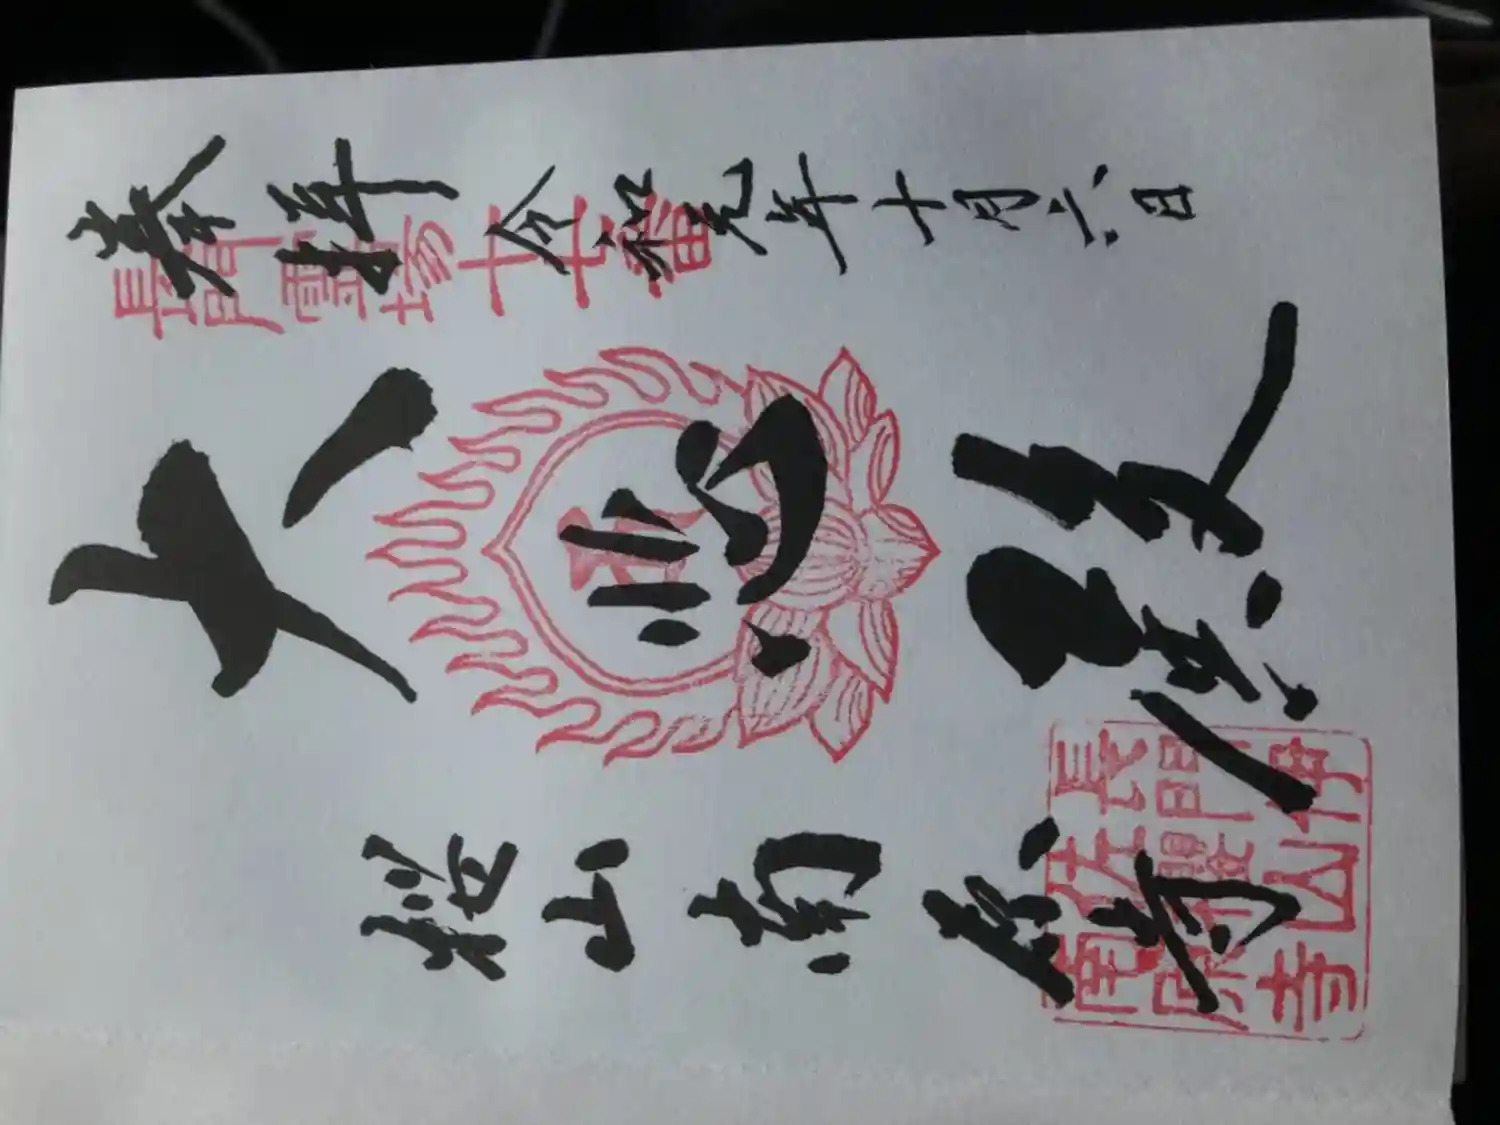 奉拝 令和元年十月六日
長門霊場十七番
大悲殿
桜山南原寺
長門伊
佐櫻山
南原寺